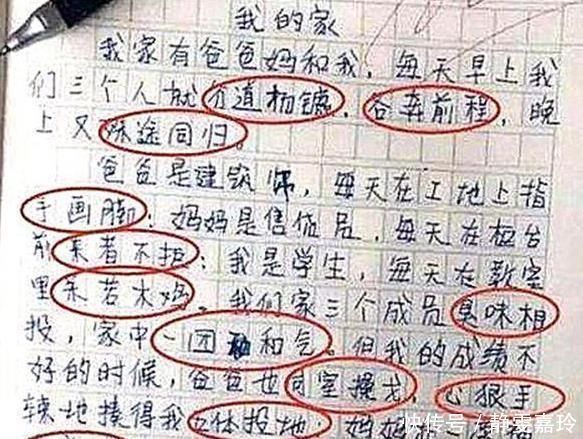 我的家
我家有爸爸妈和我，每天早上我
们三个人就分道扬镳，各奔前程，晚
上又殊途同归。
爸爸是建筑师，每天在工地上指
手画脚；妈妈是售货员，每天在柜台
前来者不拒；我是学生，每天在教室
里呆若木鸡。我们家三个成员臭味相
投，家中一团和气。但我的成绩不
好的时候，爸爸也同室操戈，心狠手
辣地揍得我五体投地；妈妈
快传号/静雯嘉玲